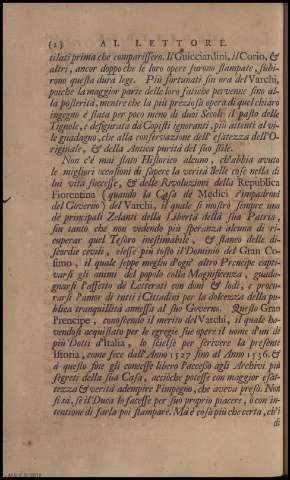 (2) AL LETTORE.
tilati prima che comparissero. Il Guicciardini, il Corio, &
altri, ancor doppo che le loro opere furono stampate, subi-
rono questa dura lege. Più fortunati sin ora del Varchi,
poiche la maggior parte delle loro fatiche pervenne sino al-
la posterità, mentre che la più preziosa opera di quel chiaro
ingegno è stata per poco meno di duoi Secoli il pasto delle
Tignole, e desigurata da Copisti ignoranti, più attenti al vi-
le guadagno, che alla conservazione dell'esatezza dell'O-
riginale, & della Antica purità del suo stile.
Non c'è mai stato Historico alcuno, ch'abbia avuto
le migliori occasioni di sapere la verità delle cose nella di
lui vita successe, & delle Revoluzioni della Republica
Fiorentina (quando la Casa de Medici s'impadronì
del Governo) del Varchi, il quale si mostrò sempre uno
de principali Zelanti della Libertà della sua Patria,
sin tanto che non vedendo più speranza alcuna di ri-
cuperar quel Tesoro inestimabile, & stanco delle di-
scordie civili, elesse più tosto il Dominio del Gran Co-
simo, il quale seppe meglio d'ogn' altro Prencipe capti-
varsi gli animi del popolo colla Magnificenza, guada-
gnarsi l'affetto de Letterati con doni & lodi, e procu-
rarsi l'amor di tutti i Cittadini per la dolcezza della pu-
blica tranquillità annessa al suo Governo. Questo Gran
Prencipe, conoscendo il merito del Varchi, il quale ha-
vendosi acquistato per le egregie sue opere il nome d'un di
più Dotti d'Italia, lo scielse per scrivere la presente
Istoria, come fece dall'Anno 1527 sino al Anno 1536, &
à questo fine gli concesse libero l'accesso agli Archivi più
segreti della sua Casa, acciòche potesse con maggior esat-
tezza & verità adempire l'impegno, che aveva preso. Non
si sà, se il Duca lo facesse per suo proprio piacere, ò con in-
tentione di farla poi stampare. Ma è cosa più che certa, ch'i
di